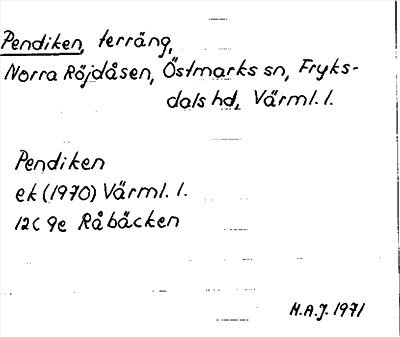 Pendiken, terräng,
Norra Röjdåsen, Östmarks sn, Fryks-
dals hd, Värml. l.
Pendiken
ek (1970) Värml. l.
12C 9e Råbäcken
H.A.J. 1971